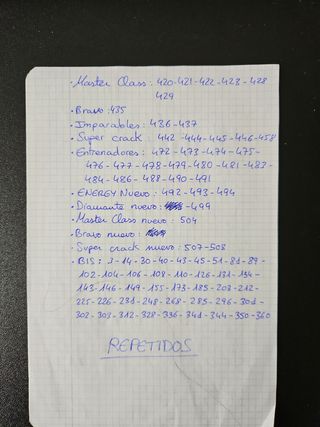 · Master Class: 420-421-422-423-428
429
· Bravo: 435
· Imparables: 436-437
· Super crack: 442-444-445-446-458
· Entrenadores: 472-473-474-475-
476-477-478-479-480-481-483-
484-486-488-490-491
· ENERGY Nuevo: 492-493-494
· Diamante nuevo: -499
· Master Class nuevo: 504
· Bravo nuevo:
· Super crack nuevo: 507-508
· BIS: 3-14-30-40-43-45-51-81-89-
102-104-106-108-110-126-131-134-
143-146-149-155-173-185-208-212-
225-226-231-248-268-285-296-301-
302-303-312-328-336-341-344-350-360
REPETIDOS